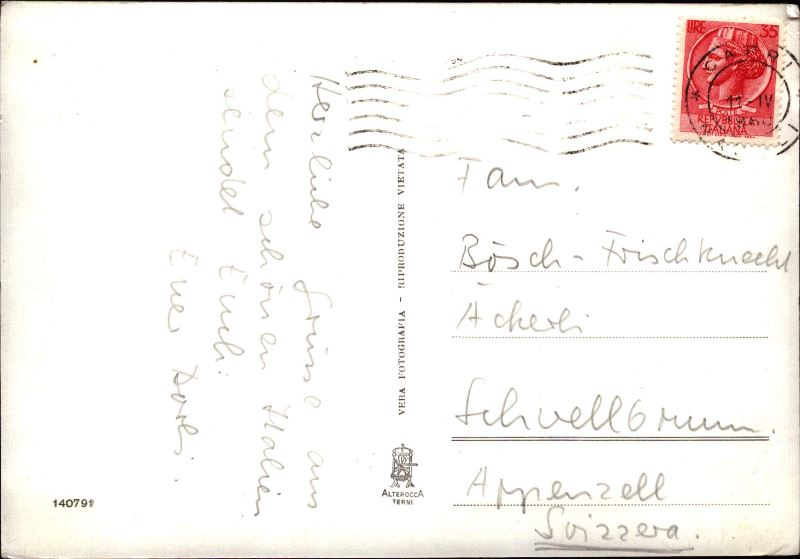 Herzliche Grüsse aus
dem schönen Italien
sendet Euch
Euer
VERA FOTOGRAFIA - RIPRODUZIONE VIETATA
ALTEROCCA
TERNI
140791
LIRE 35
POSTE
REPVBBLICA
ITALIANA
CAPRI
11-IV
Fam.
Bösch-Frischknecht
Ackerli
Schwellbrunn.
Appenzell
Svizzera.